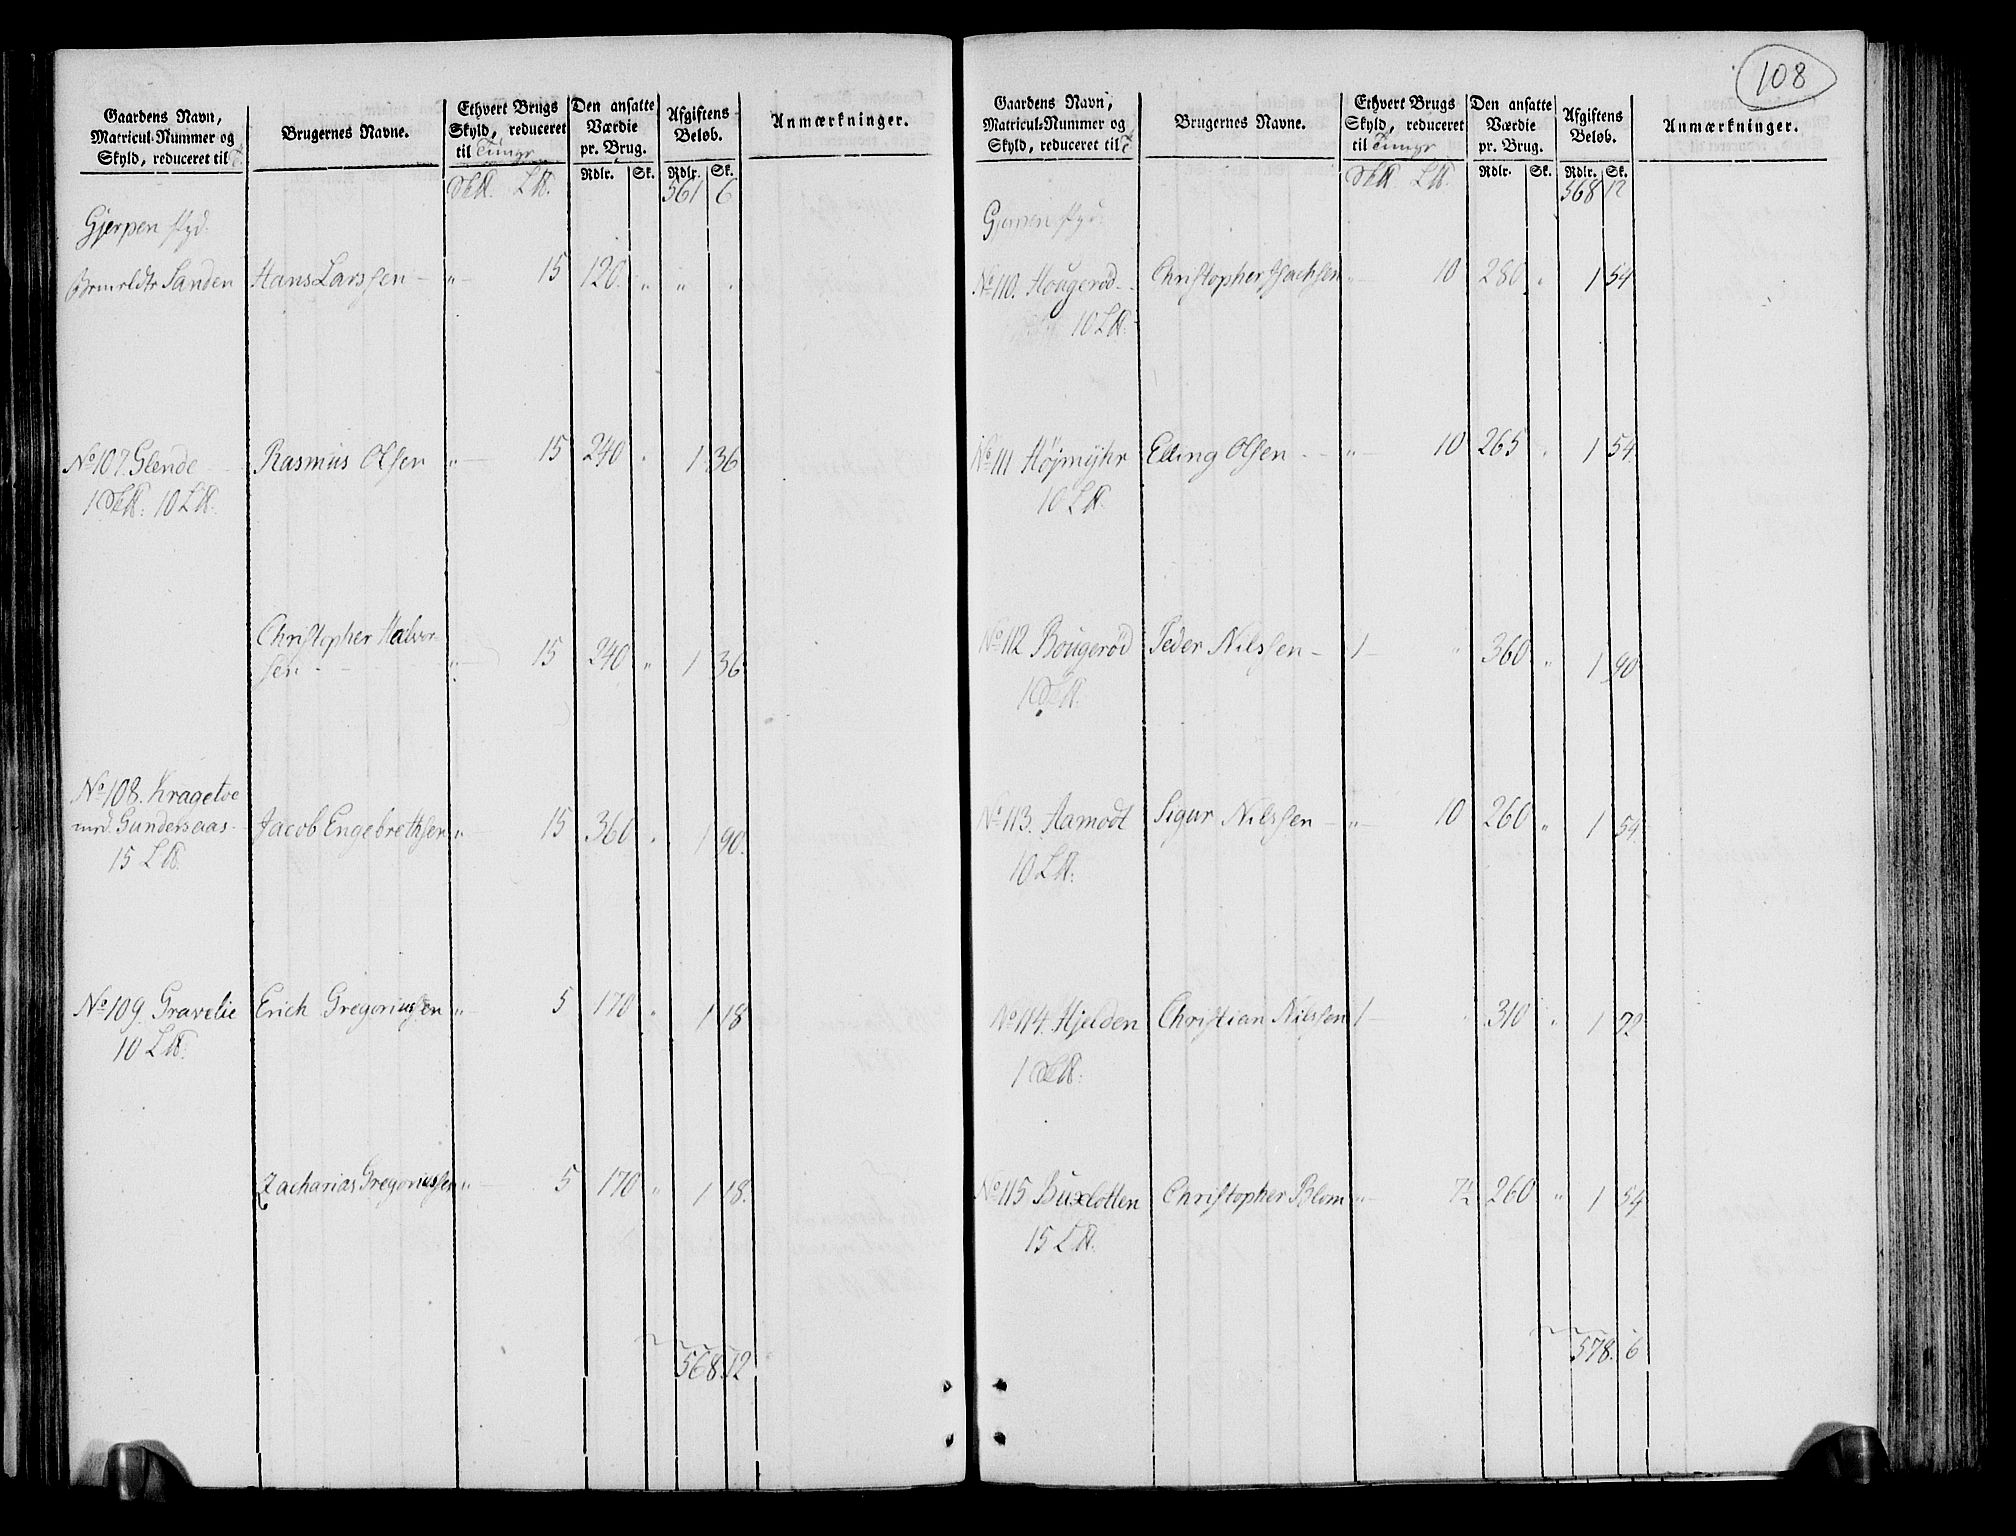 108
Gaardens Navn, Matricul-Nummer og Skyld, reduceret til
Brugernes Navne.
Ethvert Brugs Skyld, reduceret til Tunge
Den ansatte Værdie pr. Brug.
Afgiftens Beløb.
Anmærkninger.
Rdlr. Sk. Rdlr. Sk.
561 6
Gjerpen
Sanden Hans Larssen - „ 15 120 „ „
No 107. Glende Rasmus Olssen „ 15 240 „ 1 36
1 10
Christopher Halvor-
sen - „ 15 240 „ 1 36
No 108. Kragetoe
med Gundersaas Jacob Engebrethsen „ 15 360 „ 1 90.
15
No 109. Gravelie Erich Gregoriussen „ 5 170 „ 1 18
10
Zacharias Gregoriussen „ 5 170 „ 1 18.
568. 12
Gaardens Navn, Matricul-Nummer og Skyld, reduceret til
Brugernes Navne.
Ethvert Brugs Skyld, reduceret til Tunge
Den ansatte Værdie pr. Brug.
Afgiftens Beløb.
Anmærkninger.
Rdlr. Sk. Rdlr. Sk.
568 12
Gjerpen
No 110. Hougerød Christopher Isachsen „ 10 280 „ 1 54
10
No 111 Højmyhr Elling Olssen - „ 10 265 „ 1 54
10
No 112 Bougerød Peder Nilssen - 1 „ 360 „ 1 90
1
No 113. Aamodt Sigur Nilssen - „ 10 260 „ 1 54
10
No 114. Hjelden Christian Nilssen 1 „ 310 „ 1 72
1
No 115 Buxlotten Christopher Blom „ 7½ 260 „ 1 54
15
578. 6